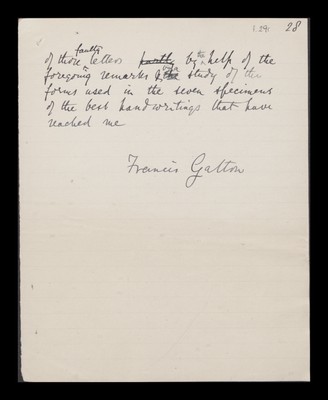 1.291
28
of those faulty letters partly by the help of the
foregoing remarks & by a study of the
forms used in the seven specimens
of the best handwritings that have
reached me
Francis Galton